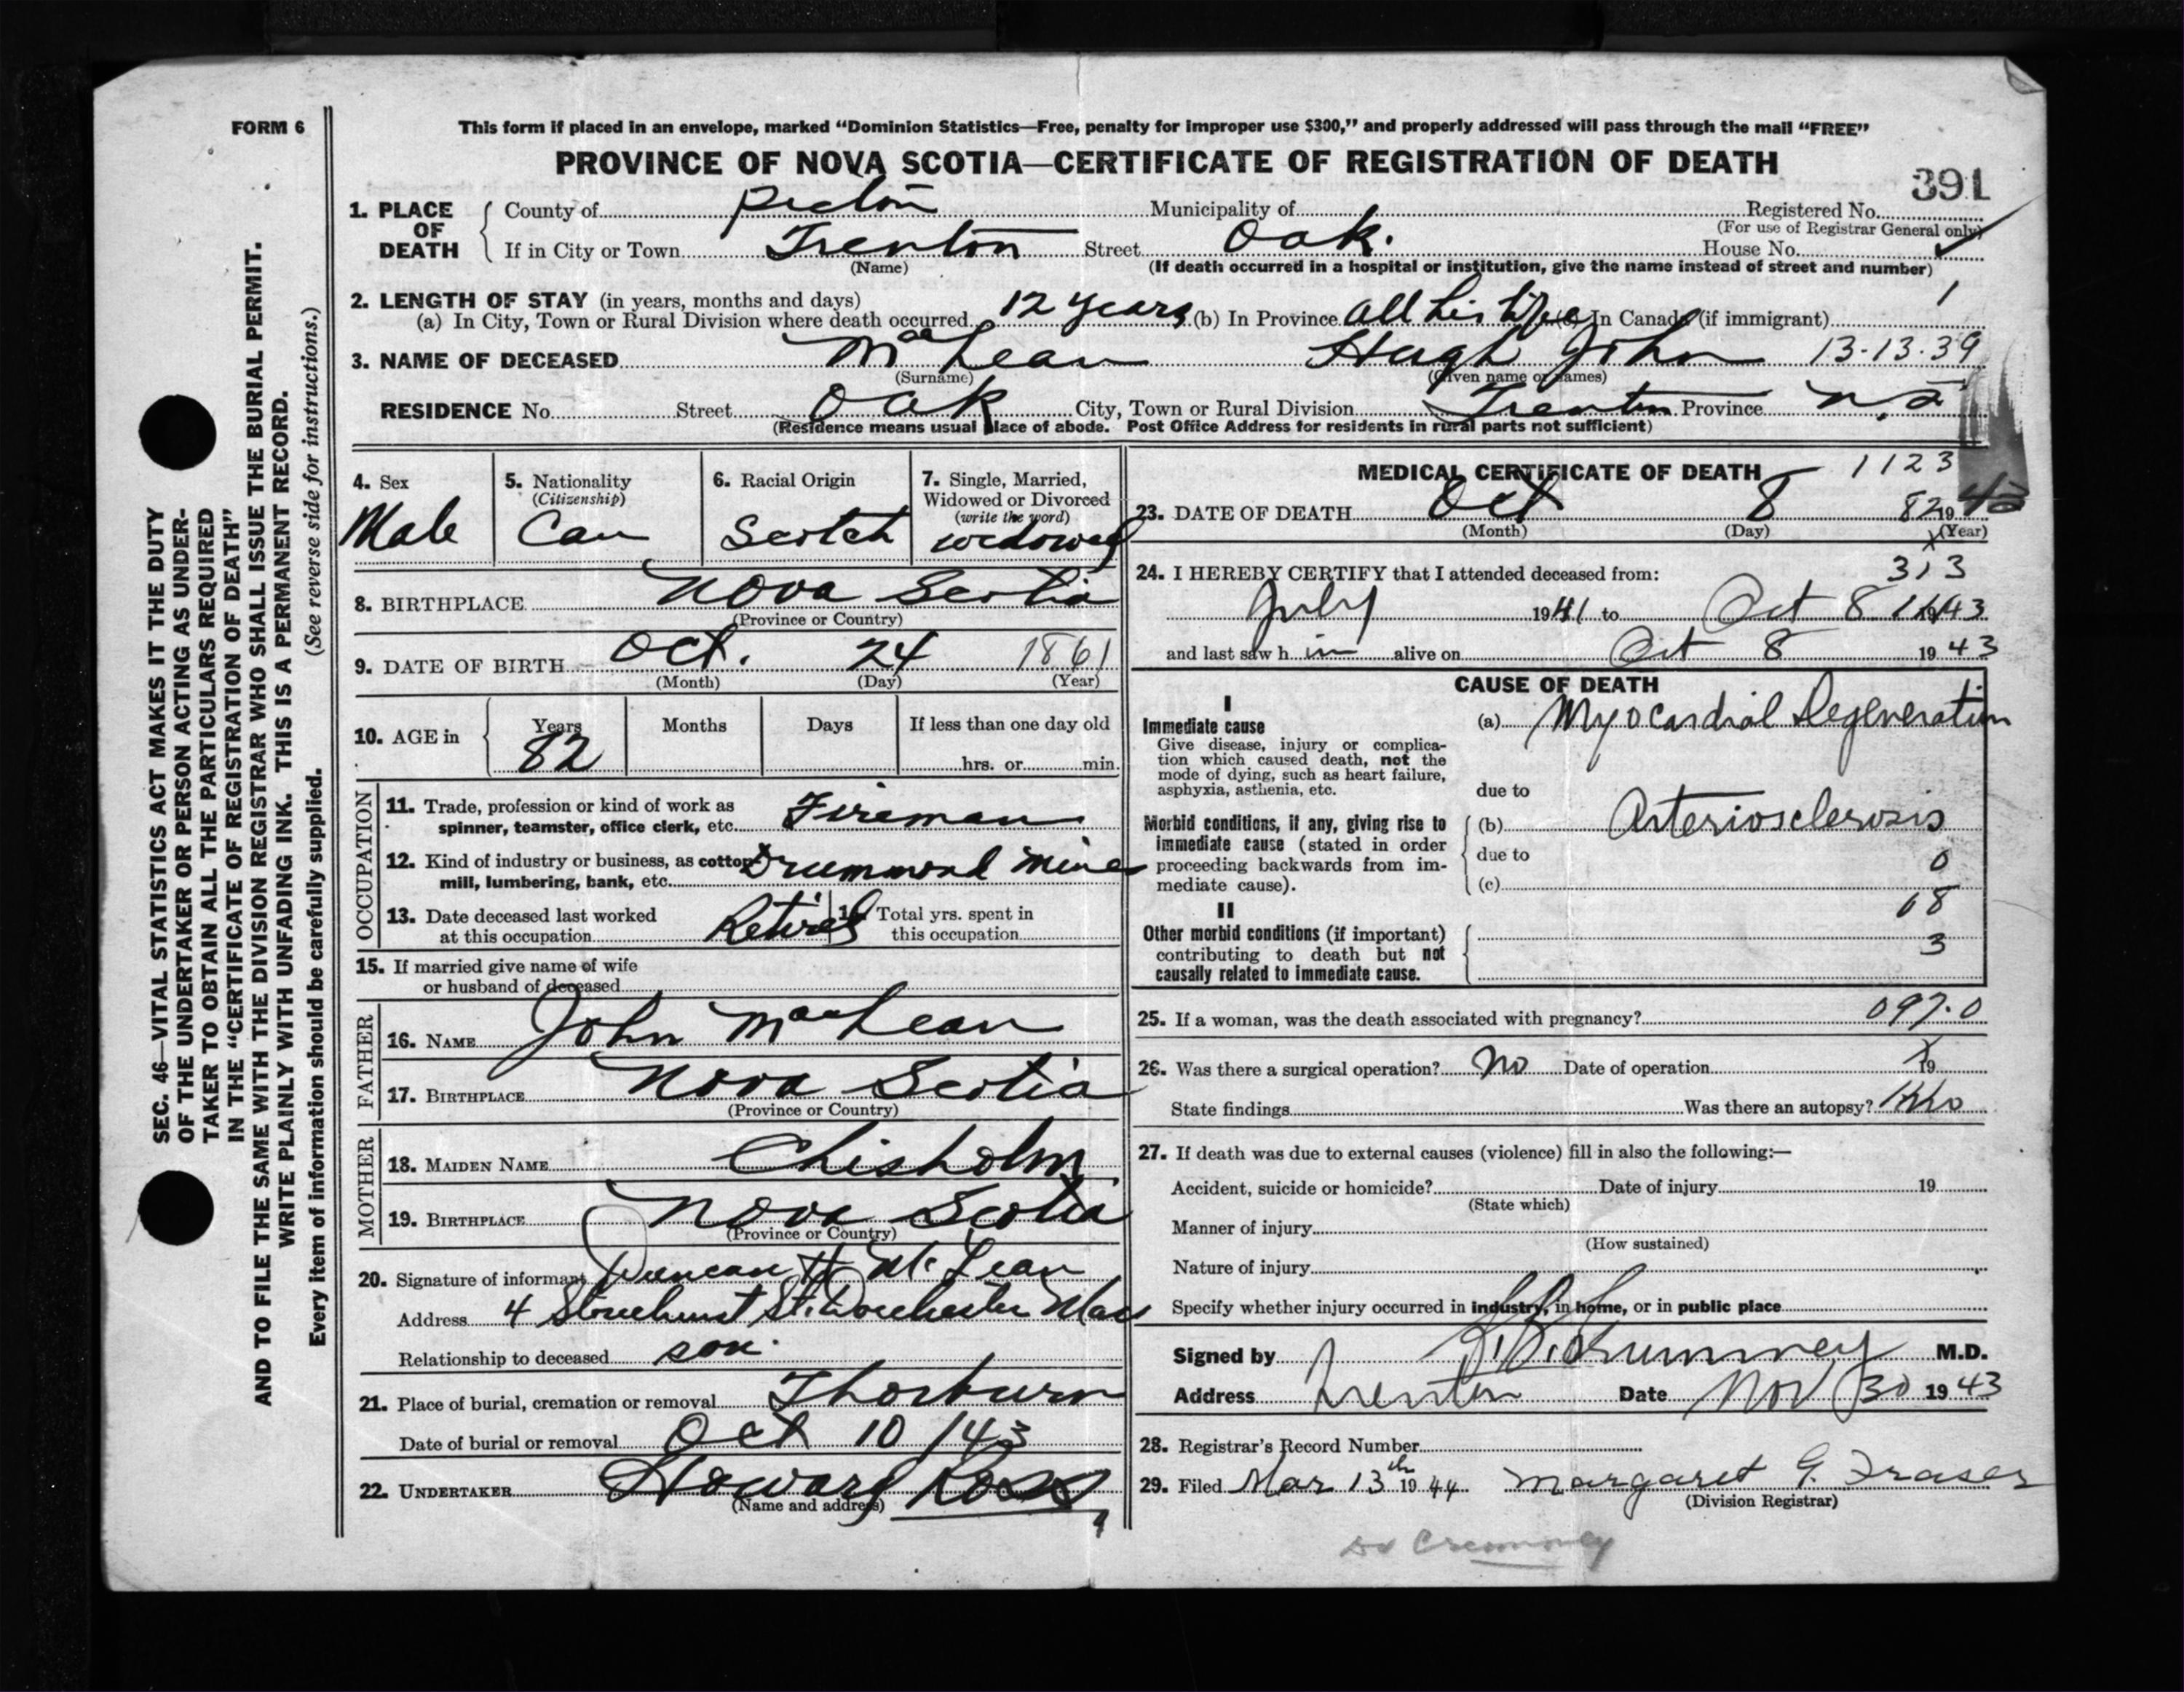 FORM 6
This form if placed in an envelope, marked “Dominion Statistics—Free, penalty for improper use $300,” and properly addressed will pass through the mail “FREE”
PROVINCE OF NOVA SCOTIA—CERTIFICATE OF REGISTRATION OF DEATH
391
1. PLACE OF DEATH
County of Pictou Municipality of Registered No.
(For use of Registrar General only)
If in City or Town Trenton Street Oak. House No.
(Name) (If death occurred in a hospital or institution, give the name instead of street and number)
2. LENGTH OF STAY (in years, months and days) 1
(a) In City, Town or Rural Division where death occurred 12 years (b) In Province all his life (c) In Canada (if immigrant)
3. NAME OF DECEASED MacLean Hugh John 13-13-39
(Surname) (Given name or names)
RESIDENCE No. Street Oak City, Town or Rural Division Trenton Province N.S
(Residence means usual place of abode. Post Office Address for residents in rural parts not sufficient)
4. Sex
Male
5. Nationality
(Citizenship)
Can
6. Racial Origin
Scotch
7. Single, Married,
Widowed or Divorced
(write the word)
widowed
8. BIRTHPLACE Nova Scotia
(Province or Country)
9. DATE OF BIRTH Oct. 24 1861
(Month) (Day) (Year)
10. AGE in
Years Months Days If less than one day old
82 hrs. or min.
OCCUPATION
11. Trade, profession or kind of work as
spinner, teamster, office clerk, etc. Fireman
12. Kind of industry or business, as cotton
mill, lumbering, bank, etc. Drummond Mines
13. Date deceased last worked
at this occupation Retired
14. Total yrs. spent in
this occupation
15. If married give name of wife
or husband of deceased
FATHER
16. NAME John MacLean
17. BIRTHPLACE Nova Scotia
(Province or Country)
MOTHER
18. MAIDEN NAME Chisholm
19. BIRTHPLACE Nova Scotia
(Province or Country)
20. Signature of informant Duncan H. McLean
Address 4 St. Dorchester Mass
Relationship to deceased son.
21. Place of burial, cremation or removal Thorburn
Date of burial or removal Oct 10/43
22. UNDERTAKER Howard Ross
(Name and address)
MEDICAL CERTIFICATE OF DEATH 1123
23. DATE OF DEATH Oct 8 82 1943
(Month) (Day) (Year)
24. I HEREBY CERTIFY that I attended deceased from: 313
July 1941 to Oct 8 1943
and last saw h im alive on Oct 8 1943
CAUSE OF DEATH
I
Immediate cause
Give disease, injury or complication
which caused death, not the
mode of dying, such as heart failure,
asphyxia, asthenia, etc.
(a) Myocardial Degeneration
due to
Morbid conditions, if any, giving rise to
immediate cause (stated in order
proceeding backwards from immediate
cause).
(b) Arteriosclerosis
due to 0
(c)
68
II
Other morbid conditions (if important)
contributing to death but not
causally related to immediate cause.
3
25. If a woman, was the death associated with pregnancy? 097.0
26. Was there a surgical operation? No Date of operation 19
State findings Was there an autopsy? No
27. If death was due to external causes (violence) fill in also the following:—
Accident, suicide or homicide? Date of injury 19
(State which)
Manner of injury
(How sustained)
Nature of injury
Specify whether injury occurred in industry, in home, or in public place
Signed by Crummey M.D.
Address Trenton Date Nov 30 1943
28. Registrar's Record Number
29. Filed Mar 13th 1944 Margaret G. Fraser
(Division Registrar)
Dr Crummey
SEC. 46—VITAL STATISTICS ACT MAKES IT THE DUTY
OF THE UNDERTAKER OR PERSON ACTING AS UNDER-
TAKER TO OBTAIN ALL THE PARTICULARS REQUIRED
IN THE “CERTIFICATE OF REGISTRATION OF DEATH”
AND TO FILE THE SAME WITH THE DIVISION REGISTRAR WHO SHALL ISSUE THE BURIAL PERMIT.
WRITE PLAINLY WITH UNFADING INK. THIS IS A PERMANENT RECORD.
Every item of information should be carefully supplied. (See reverse side for instructions.)